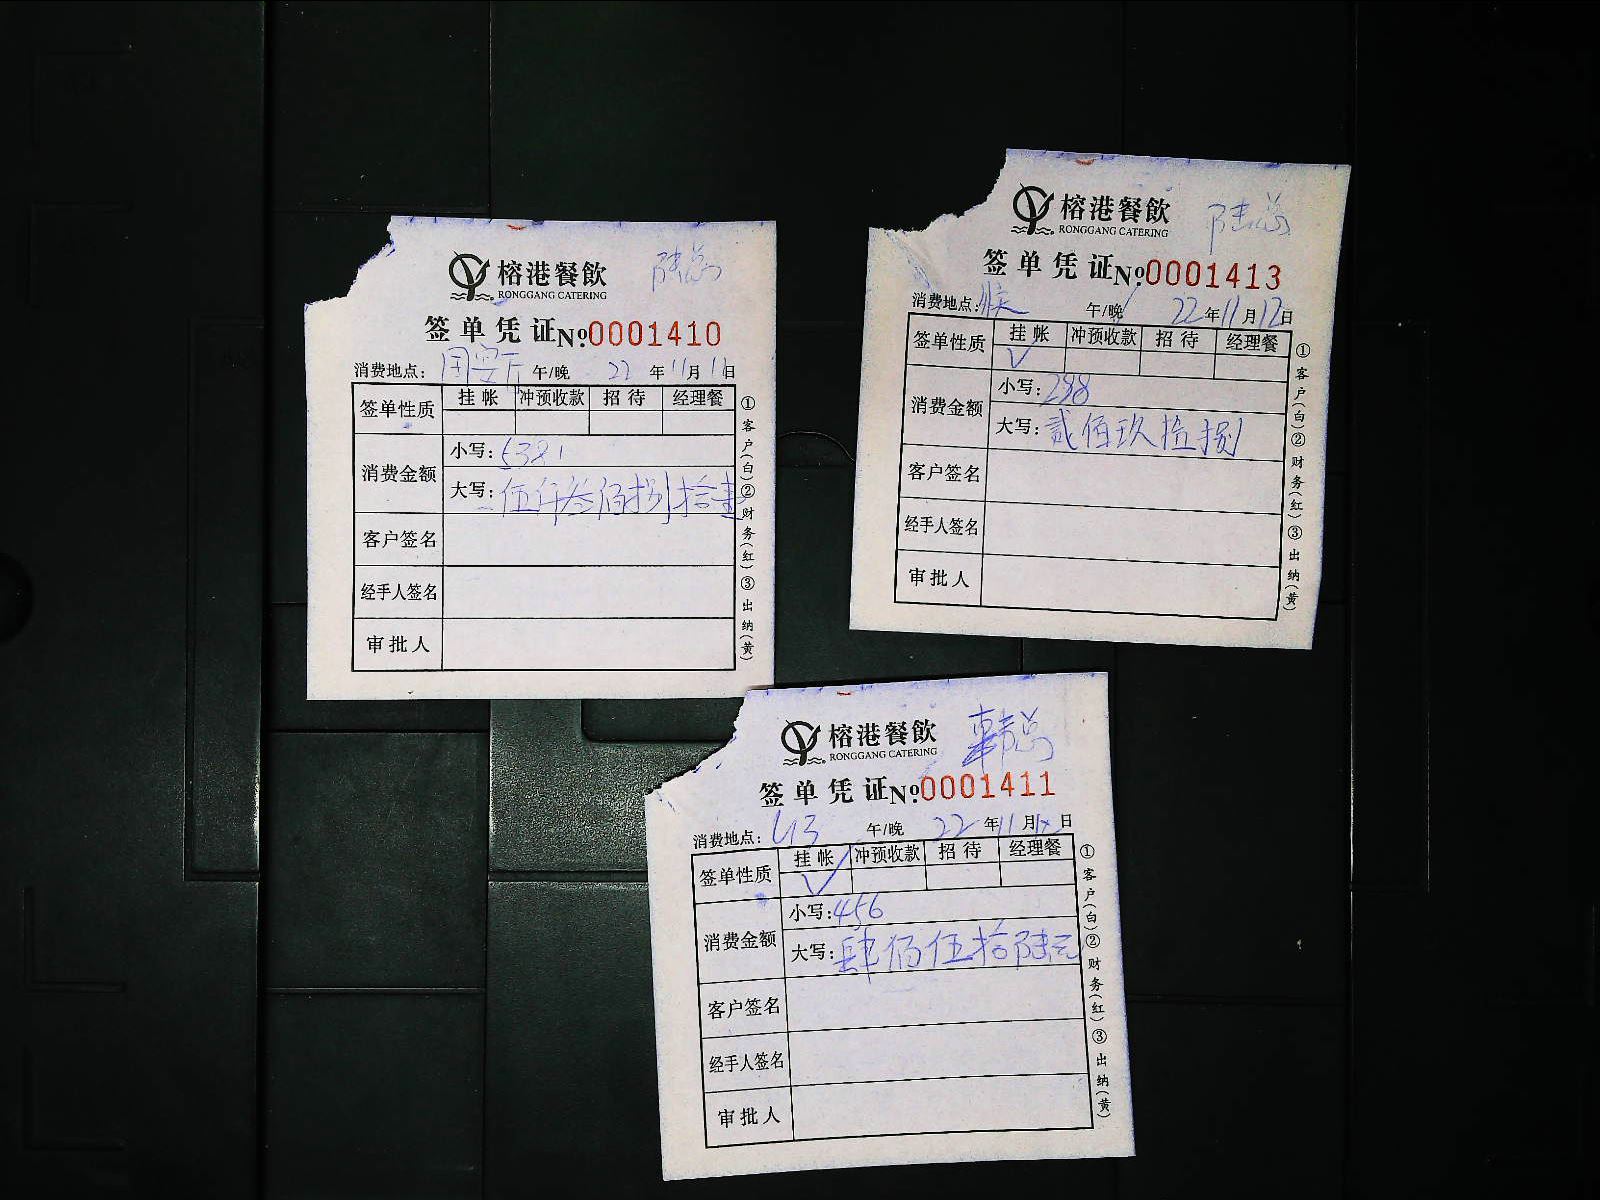 榕港餐飲 陆总
RONGGANG CATERING
签单凭证 №0001410
消费地点: 国宴厅 午/晚 22年11月11日
签单性质 挂帐 冲预收款 招待 经理餐
消费金额 小写: 5381
大写: 伍仟叁佰捌拾壹
客户签名
经手人签名
审批人
①客户(白)②财务(红)③出纳(黄)
榕港餐飲 陆总
RONGGANG CATERING
签单凭证 №0001413
消费地点: 午/晚 22年11月12日
签单性质 挂帐 冲预收款 招待 经理餐
消费金额 小写: 298
大写: 贰佰玖拾捌
客户签名
经手人签名
审批人
①客户(白)②财务(红)③出纳(黄)
榕港餐飲 韩总
RONGGANG CATERING
签单凭证 №0001411
消费地点: 午/晚 22年11月12日
签单性质 挂帐 冲预收款 招待 经理餐
消费金额 小写: 456
大写: 肆佰伍拾陆元
客户签名
经手人签名
审批人
①客户(白)②财务(红)③出纳(黄)